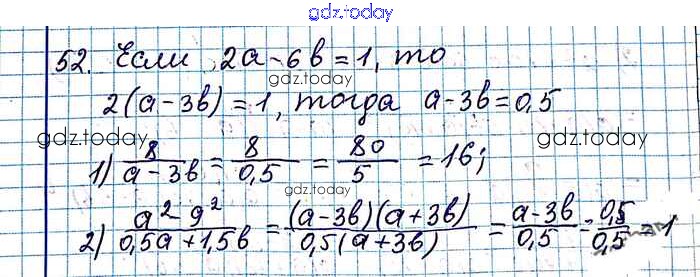 gdz.today
52. Если 2a - 6b = 1, то
gdz.today
2(a - 3b) = 1, тогда a - 3b = 0,5
gdz.today gdz.today
1) 8/(a - 3b) = 8/0,5 = 80/5 = 16;
gdz.today
2) (a² - 9²)/(0,5a + 1,5b) = (a - 3b)(a + 3b)/(0,5(a + 3b)) = (a - 3b)/0,5 = 0,5/0,5 = 1